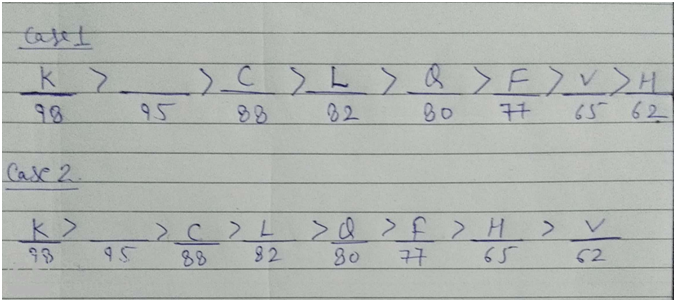 Case 1
K > ___ > C > L > Q > F > V > H
98 95 88 82 80 77 65 62
Case 2
K > ___ > C > L > Q > F > H > V
98 95 88 82 80 77 65 62